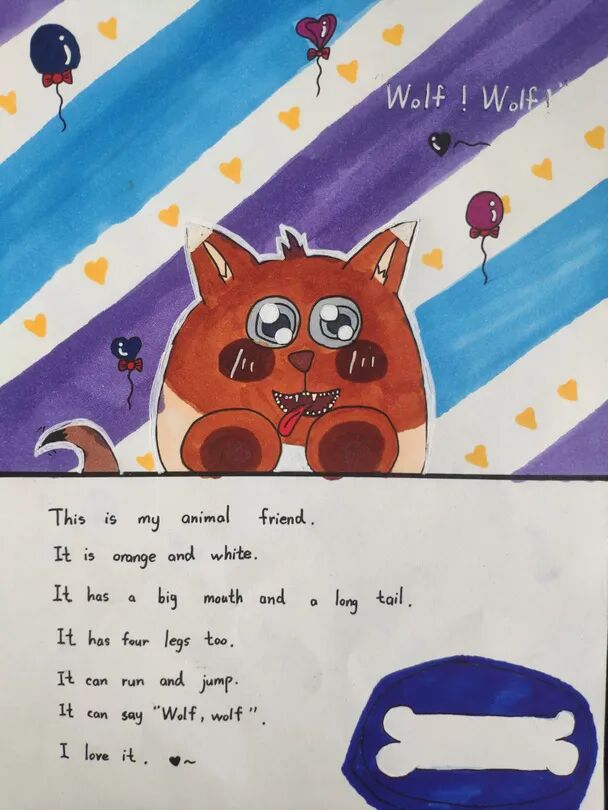 "Wolf ! Wolf !"
This is my animal friend.
It is orange and white.
It has a big mouth and a long tail.
It has four legs too.
It can run and jump.
It can say "Wolf, wolf".
I love it. ♥~